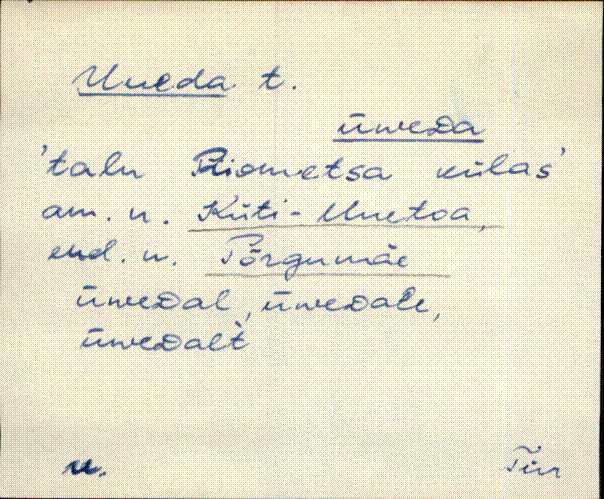 Uueda t.
üweda
'talu Riometsa külas'
am. n. Küti-Uuetoa,
end. n. Põrgumäe
üwedal, üwedale,
üwedalt
u. Tür